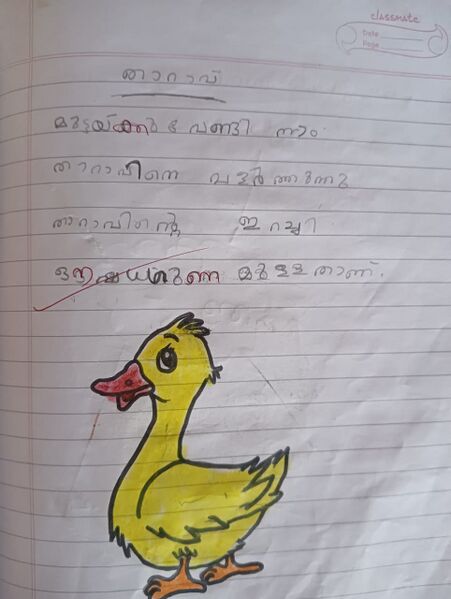 classmate
Date
Page
താറാവ്
മുട്ടയ്ക്കു വേണ്ടി നാം
താറാവിനെ വളർത്തുന്നു
താറാവിന്റെ ഇറച്ചി
ഔഷധഗുണ മുള്ളതാണ്.